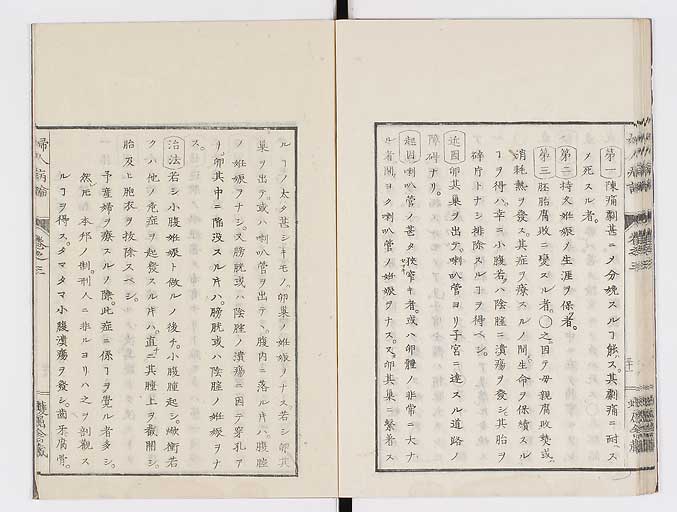 第一 陳痛劇甚ニメ分娩スルヿ能ス其劇痛ニ耐ス
ノ死スル者。
第二 持久妊娠ノ生涯ヲ保者。
第三 胚胎腐敗ニ變スル者。◯之因ヲ毋親腐敗熱或
消耗熱ヲ發ス。其症ヲ療スルノ間。生命ヲ保續スル
ヿヲ得ハ。幸ニ小腹若ハ陰腟ニ潰瘍ヲ發シ。其胎ヲ
碎片トナシ排除スルヿヲ得ベシ。
近因 卵其巢ヲ出テ。喇叭管ヨリ子宮ニ達スル道路ノ
障碍ナリ。
起因 喇叭管ノ甚タ狹窄キ者。或ハ卵體ノ非常ニ大ナ
ル者。間ヨク喇叭管ノ妊娠ヲナス。又卵其巢ニ繫着ス
ルヿノ太タ甚シキモノ。卵巢ノ妊娠ヲナス若シ卵其
巢ヲ出テ。或ハ喇叭管ヲ出テヽ。腹内ニ落ル片ハ。腹腟
ノ妊娠ヲナシ。又膀胱或ハ陰腟ノ潰瘍ニ因テ穿孔ア
リ卵其中ニ陷沒スル片ハ。膀胱或ハ陰腟ノ妊娠ヲナ
ス。
治法 若シ小腹妊娠ト做ルノ後チ。小腹腫起シ。焮衝若
クハ他ノ危症ヲ起發スル片ハ。直ニ其腫上ヲ截開シ。
胎及ヒ胞衣ヲ拔除スベシ。
予産婦ヲ療スルノ際。此症ニ係ヿヲ覺ル者多シ。
然𪜈本邦ノ制。刑人ニ非ルヨリハ之ヲ剖觀ス
ルヿヲ得ス。タマタマ小腹潰瘍ヲ發シ。齒牙腐骨。
婦人病論
卷之三